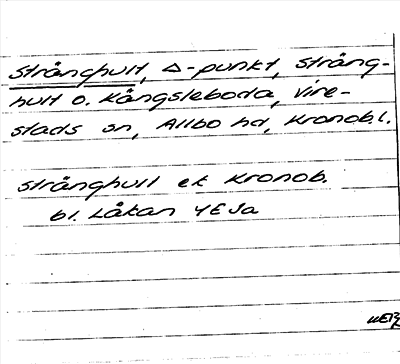 Strånghult, Δ-punkt, Strång-
hult o. Kångsleboda, Vire-
stads sn, Allbo hd, Kronob.l.
Strånghult ek Kronob.
bl. Låkan 4E Ja